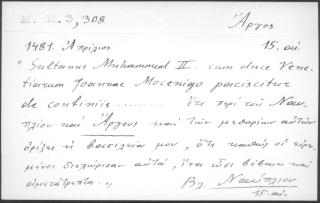 M. M. 3, 308.
Ἄργος
1481. Ἀπρίλιος
15. αἰ.
"Sultanus Muhammed II. cum duce Vene-
tiarum Joannae Mocenigo paciscitur
de confiniis ........ ἔτι περὶ τοῦ Ναυ-
πλίου καὶ Ἄργους καὶ τῶν μεθορίων αὐτῶν
ὁρίζει ἡ βασιλεία μου, ὅτι καθὼς οἱ εἰρη-
μένοι διεχώρισαν αὐτά, ἵνα ὦσι βέβαια καὶ
ἀμετάτρεπτα."
Βλ. Ναύπλιον
15. αἰ.